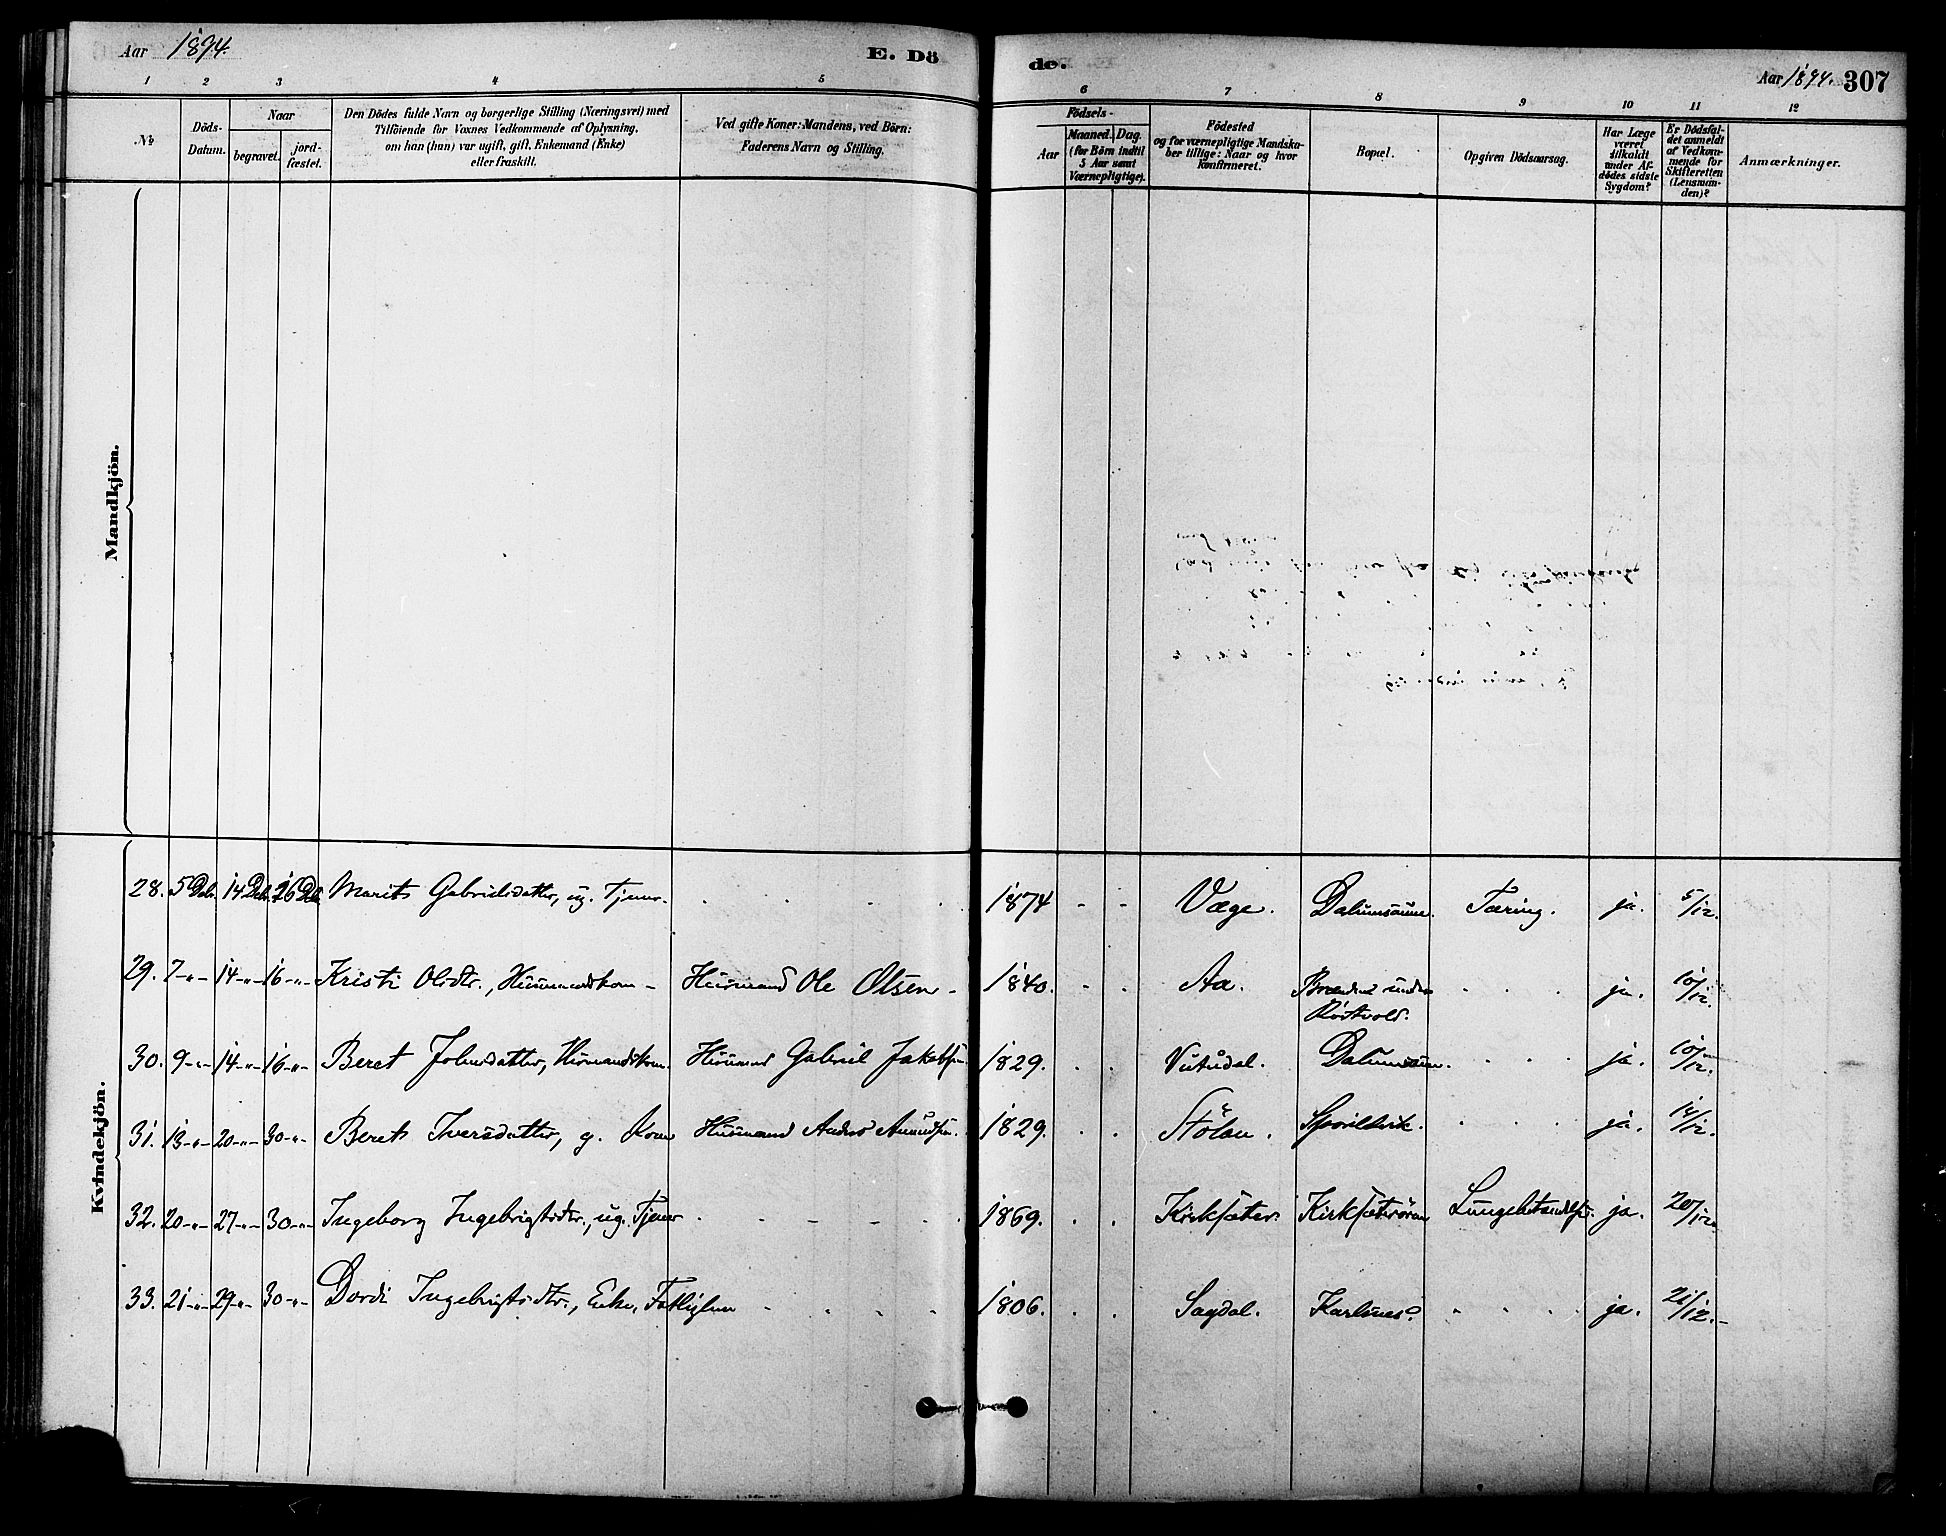 Aar 1894.
E. Dö
de.
Aar 1894. 307
1 2 3 4 5 6 7 8 9 10 11 12
No
Döds-
Datum.
Naar
begravet.
jord-
fæstet.
Den Dödes fulde Navn og borgerlige Stilling (Næringsvei) med
Tilföiende for Voxnes Vedkommende af Oplysning,
om han (hun) var ugift, gift, Enkemand (Enke)
eller fraskilt.
Ved gifte Koner: Mandens, ved Börn:
Faderens Navn og Stilling.
Födsels-
Aar
Maaned. Dag.
(for Börn indtil
5 Aar samt
Værnepligtige).
Födested
og for værnepligtige Mandska-
ber tillige: Naar og hvor
konfirmeret.
Bopæl.
Opgiven Dödsaarsag.
Har Læge
været
tilkaldt
under Af-
dödes sidste
Sygdom?
Er Dödsfal-
det anmeldt
af Vedkom-
mende for
Skifteretten
(Lensman-
den)?
Anmærkninger.
Mandkjön.
Kvindekjön.
28. 5 Dcbr. 14 Dcbr. 16 Dcbr. Marit Gabrielsdatter, ug. Tjener. 1874 - - Vaage. Tæring. ja. 5/12.
29. 7 -"- 14 -"- 16 -"- Kristi Olsdtr., Husmandskone - Husmand Ole Olsen - 1840. - . Aa. under Röstvold. ja. 10/12.
30. 9 -"- 14 -"- 16 -"- Beret Johnsdatter, Husmandskone Husmand Gabriel Jakobsen 1829. . . Vutudal. ja. 10/12.
31. 13 -"- 20 -"- 30 -"- Beret Iversdatter, g. Kone Husmand Anders Amundsen. 1829. . . Stölan. ja. 14/12.
32. 20 -"- 27 -"- 30 -"- Ingeborg Ingebrigtsdtr., ug. Tjener 1869. . . Kirksæter. Kirksæterören ja. 20/12.
33. 21 -"- 29 -"- 30 -"- Dordi Ingebrigtsdtr., Enke, Fattiglem 1806. . . Sagdal. Karlsnes? ja. 21/12.